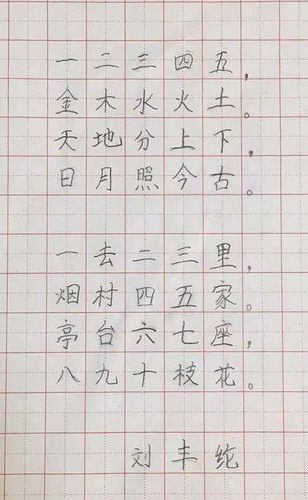 一二三四五，
金木水火土。
天地分上下，
日月照今古。
一去二三里，
烟村四五家。
亭台六七座，
八九十枝花。
刘丰纶